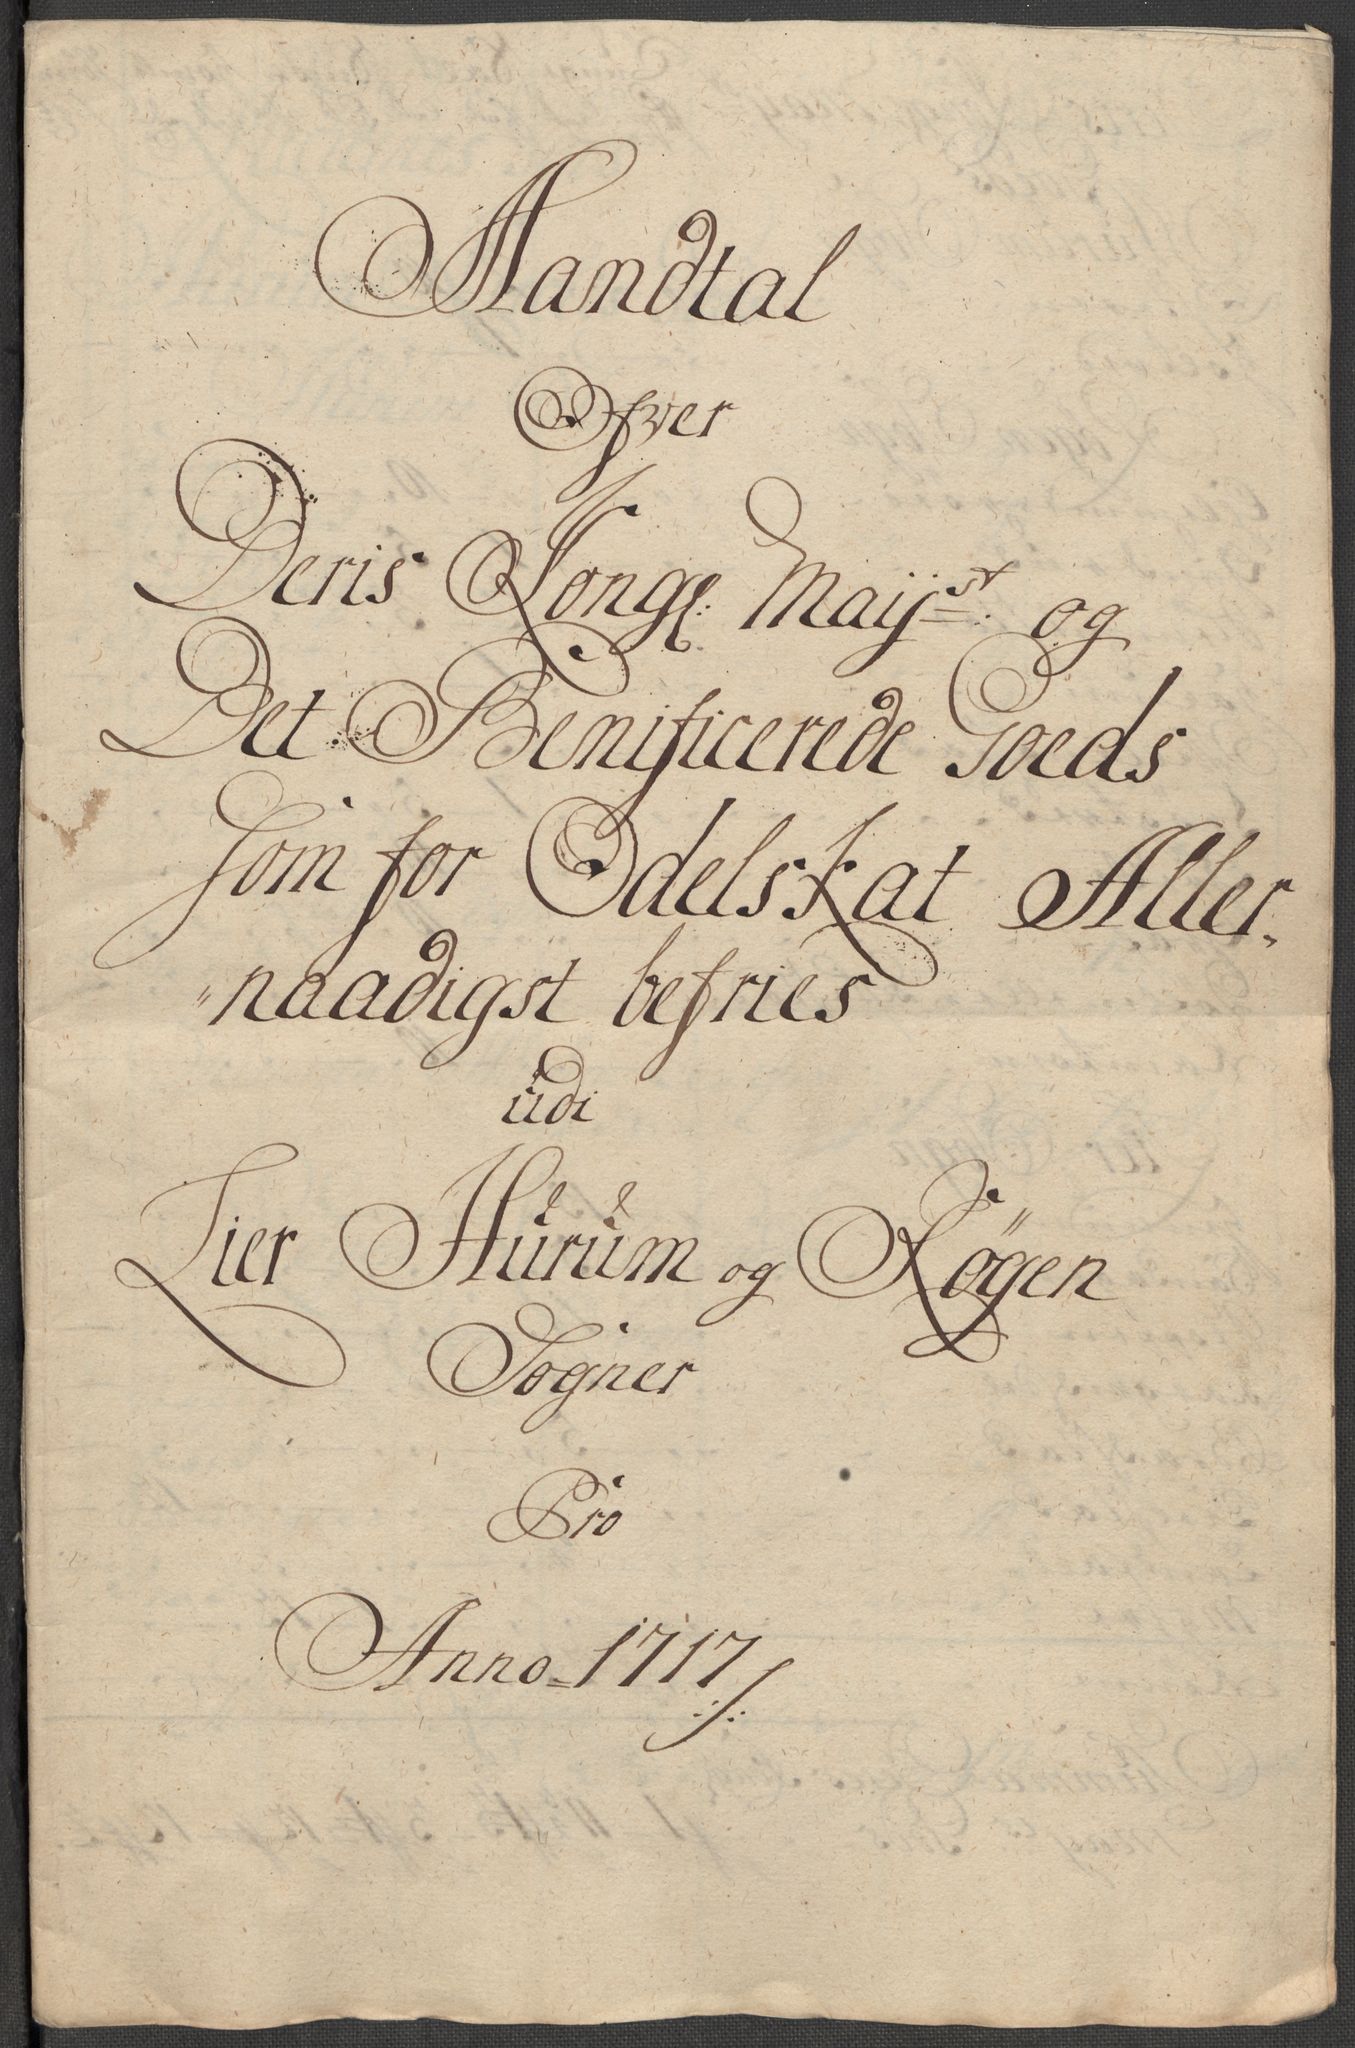 Mandtal
Ofver
Deris Kongl: Maijst. og
Det Benificerede Goeds
som for Odelskat Aller„
„naadigst befries
udi
Lier Hurum og Røgen
Sogner
Pro
Anno 1717